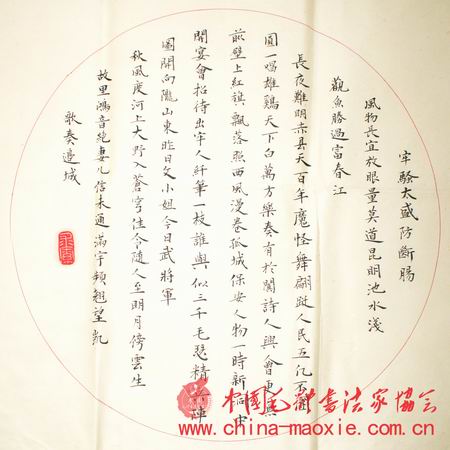 牢騷太盛防斷腸
風物長宜放眼量莫道昆明池水淺
觀魚勝過富春江
長夜難明赤县天百年魔怪舞翩躚人民五亿不團
圓一唱雄鷄天下白萬方樂奏有於闐詩人興會更無
前壁上紅旗飄落照西風漫卷孤城保安人物一時新洞中
開宴會招待出牢人纤筆一枝誰與似三千毛瑟精兵陣
圖開向隴山東昨日文小姐今日武將軍
秋風度河上大野入蒼穹佳令隨人至明月傍雲生
故里鴻音絶妻儿信未通滿宇頻翹望凱
歌奏邊城
中国毛 書法家協会
www.china-maoxie.com